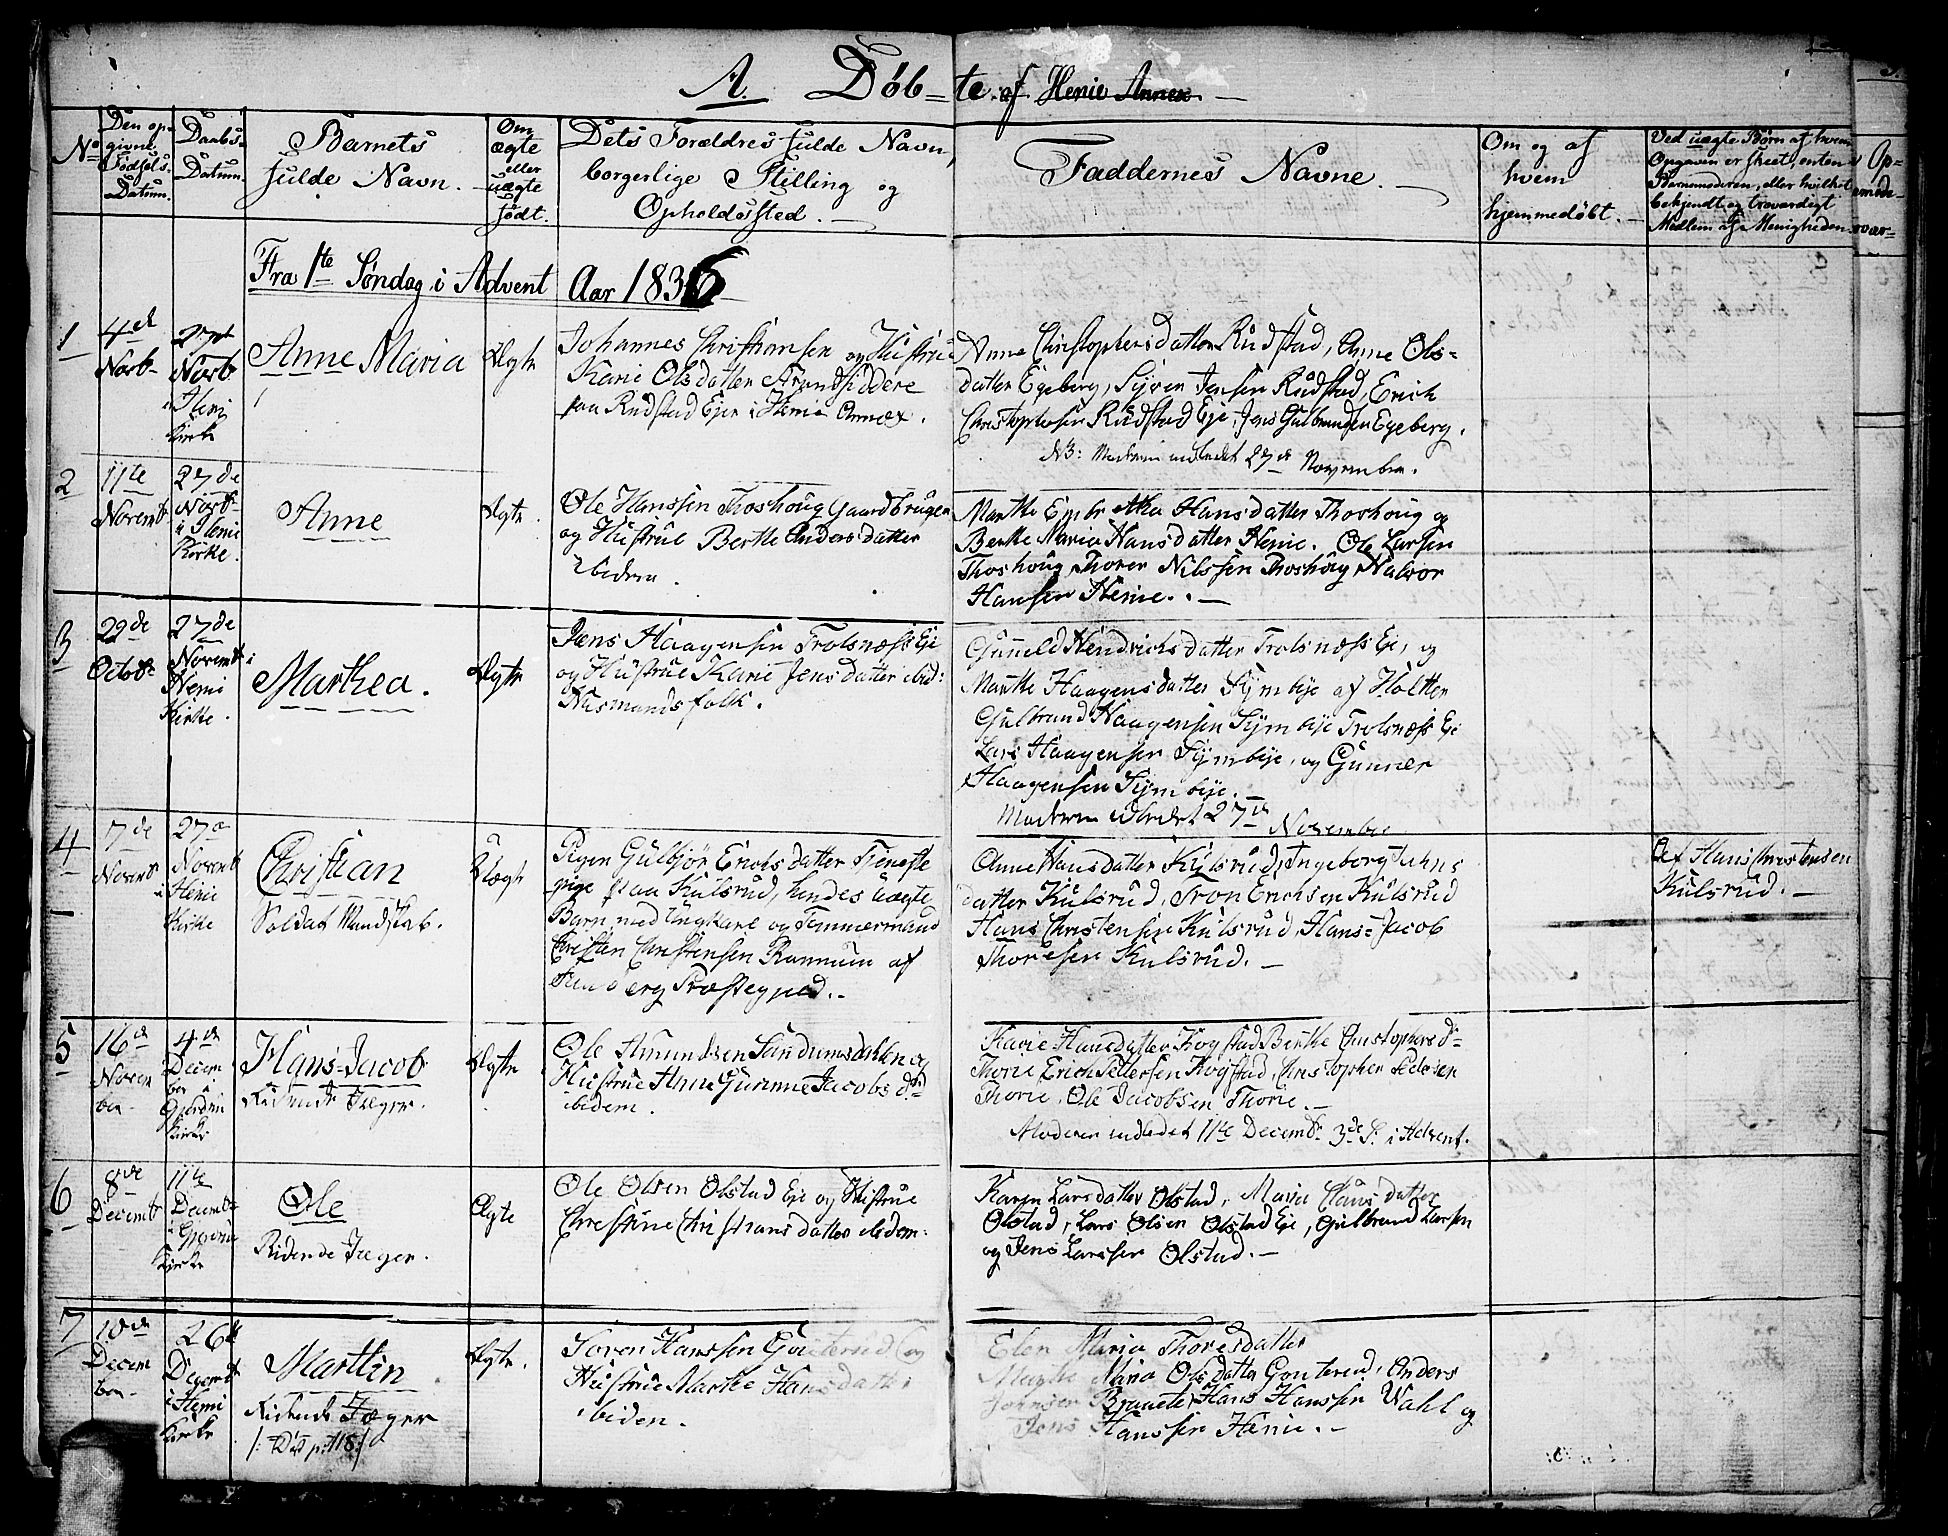 A. Døb-te af Henie Annex.
No
Den op-
givne
Fødsels
Datum.
Daabs-
Datum.
Barnets
fulde Navn.
Om
ægte
eller
uægte
født.
Dets Forældres fulde Navn,
borgerlige Stilling og
Opholdssted.
Faddernes Navne.
Om og af
hvem
hjemmedøbt.
Ved uægte Børn af hvem
Opgaven er skeet, enten
Barnemoderen, eller hvilket
bekjendt og troværdigt
Medlem af Menigheden
Fra 1te Søndag i Advent Aar 1836
1
4de
Novb
27de
Novb
i Heni
Kirke
Anne Maria
Ægte
Johannes Christiansen og Hustrue
Karie Olsdatter Strandsiddere
paa Rudstad Ejer i Henie Annex.
Anne Christophersdatter Rudstad, Anne Ols-
datter Egeberg, Syver Jensen Rudstad, Erich
Christophersen Rudstad Eje, Jens Gulbrandsen Egeberg.
NB: Moderen indledet 27de November.
2
11te
Novemb
27de
Novb
i Heni
Kirke.
Anne
Ægte.
Ole Hanssen Thoshoug Gaardbruger
og Hustrue Berthe Andersdatter
ibidem.
Marthe Hansdatter Thoshoug og
Berthe Maria Hansdatter Henie. Ole Larsen
Thoshoug, Thorer Nilssen Thoshoug, Halvor
Hansen Henie.
3
29de
Octob
27de
Novemb i
Heni
Kirke.
Marthea.
Ægte
Jens Haagensen Trolsnæss Eje
og Hustrue Karie Jensdatter ibid:
Huusmandsfolk.
Gunneld Hendrichsdatter Trolsnæss Eje, og
Marthe Haagensdatter Symbye af Holter
Gulbrand Haagensen Symbye Trolsnæss Eje
Lars Haagensen Symbye, og Gunner
Haagensen Symbye.
Moderen indledet 27de November
4
7de
Novemb
27de
Novemb
i Henie
Kirke
Christian
Soldat Mandskab.
Uægte
Pigen Gulbjør Erichsdatter Tjeneste
pige paa Kulsrud, hendes uægte
Barn med Ungkarl og Tømmermand
Christen Christensen Rannum af
Præstegjeld.
Anne Hansdatter Kulsrud, Ingeborg Johns
datter Kulsrud, Iver Erichsen Kulsrud
Hans Christensen Kulsrud, Hans-Jacob
Thoresen Kulsrud.
Af Hans Thorstensen
Kulsrud.
5
16de
Novem
ber
4de
Decem
ber i
Gjerden
Kirke
Hans-Jacob
Ridende Jæger.
Ægte
Ole Amundsen Sandumsdahlen og
Hustrue Anne Gurine Jacobsd-
ibidem.
Karie Hansdatter Kogstad Berthe Christophersd-
Thorie Erich Pettersen Kogstad, Christopher Pedersen
Thorie, Ole Jacobsen Thorie.
Moderen indledet 11te Decemb 3de S. i Advent.
6
8de
Decemb
11te
Decemb
i Gjerden
Kirke
Ole
Ridende Jæger.
Ægte
Ole Olsen Olstad Eje og Hustrue
Christine Christiansdatter ibidem.
Karen Larsdatter Olstad, Maria Clausdatter
Olstad, Lars Olsen Olstad Eje, Gulbrand Larsen
og Jens Larssen Olstad.
7
10de
Decem
ber
26de
Decemb
i Heni
Kirke
Marthin.
Ridende Jæger
Ægte.
Soren Hanssen og
Hustrue Marthe Hansdatter
ibidem.
Elen Maria Thoresdatter
Maria Olsdatter Gouterud, Anders
Johnsen Hans Hanssen Wahl og
Jens Hanssen Henie.